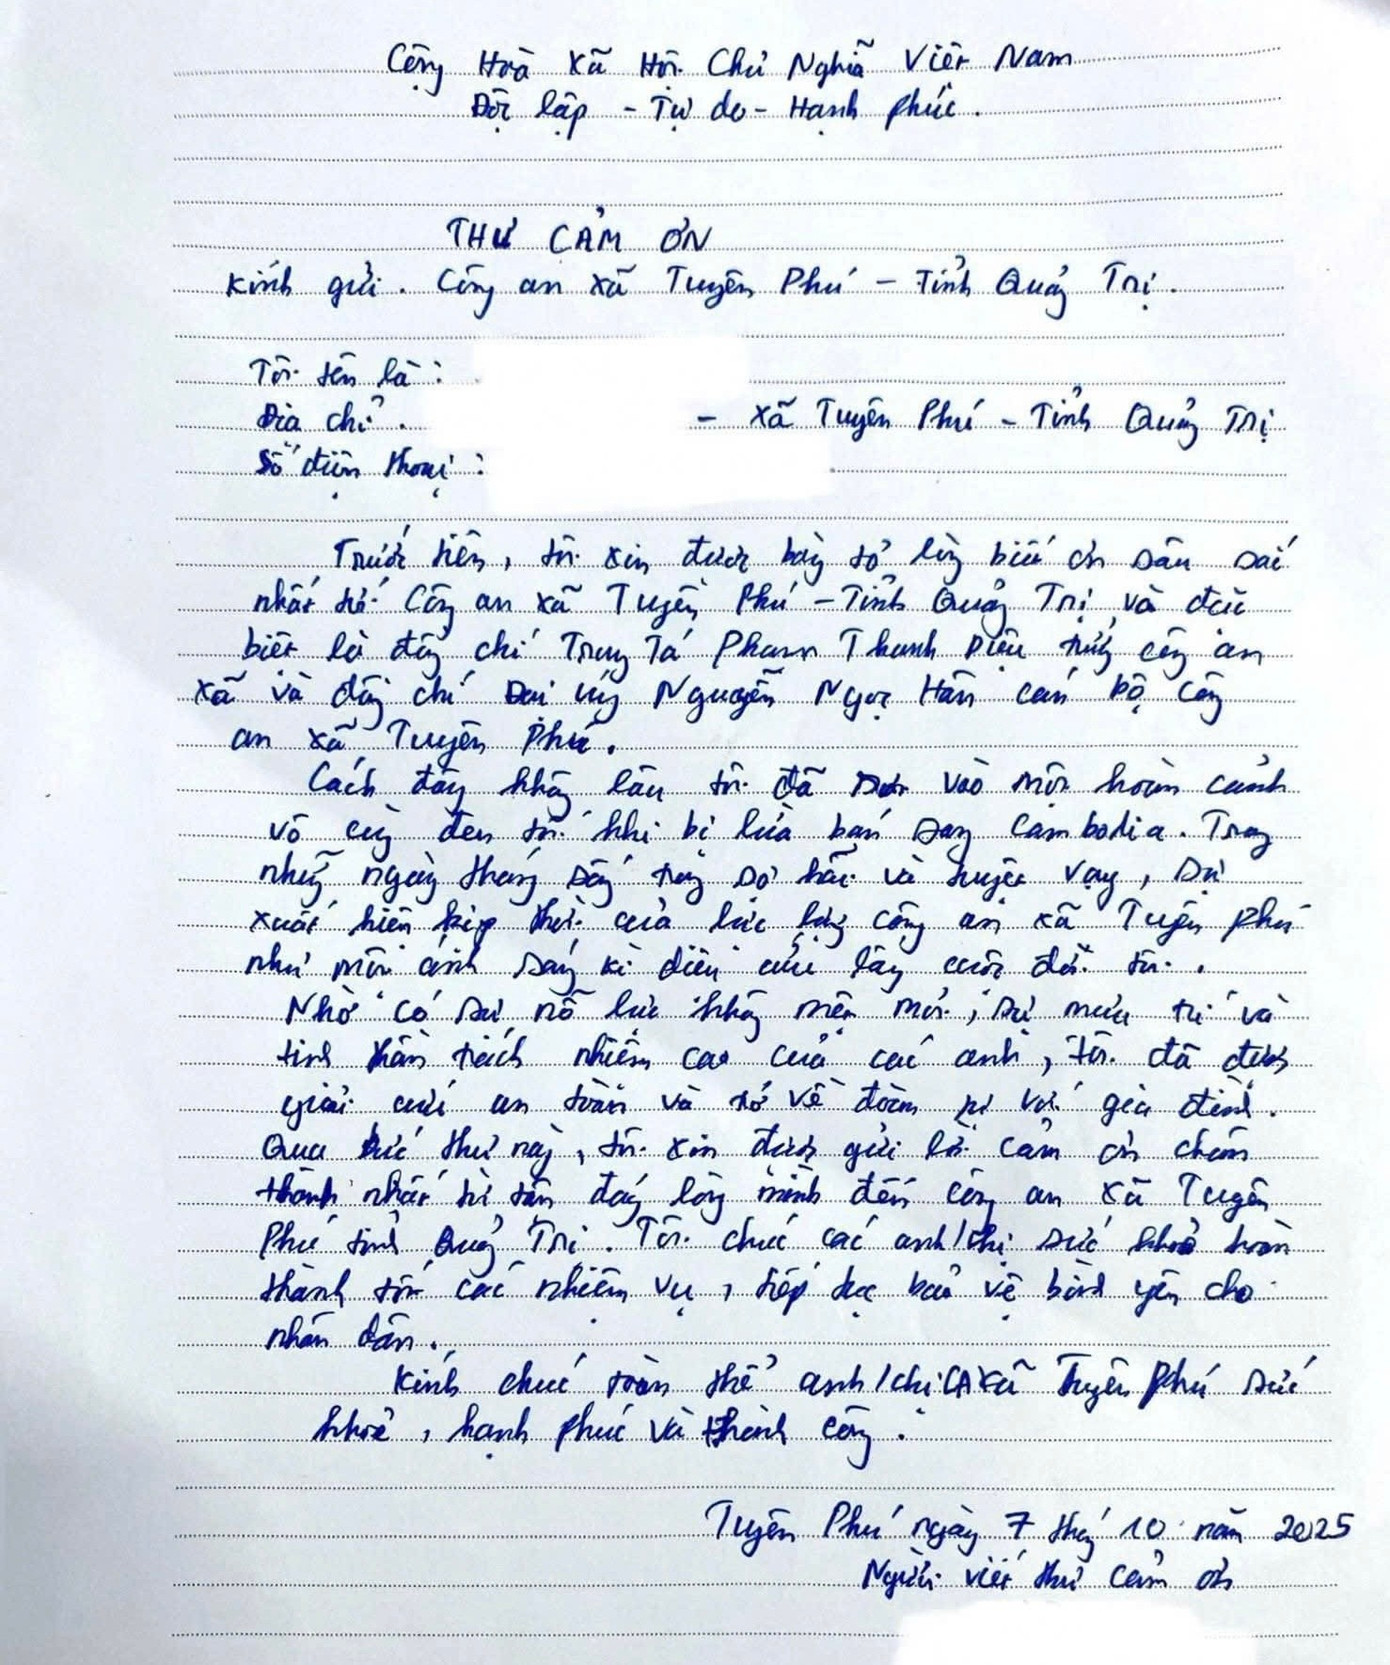 Cộng Hoà Xã Hội Chủ Nghĩa Việt Nam
Độc lập - Tự do - Hạnh phúc.
THƯ CẢM ƠN
Kính gửi. Công an xã Tuyên Phú - Tỉnh Quảng Trị.
Tôi tên là :
Địa chỉ. - xã Tuyên Phú - Tỉnh Quảng Trị
Số điện thoại :
Trước tiên, tôi xin được bày tỏ lòng biết ơn sâu sắc
nhất tới Công an xã Tuyên Phú - Tỉnh Quảng Trị và đặc
biệt là đồng chí Trung Tá Phạm Thanh Diệu trưởng công an
xã và đồng chí Đại úy Nguyễn Ngọc Hân cán bộ công
an xã Tuyên Phú.
Cách đây không lâu tôi đã rơi vào một hoàn cảnh
vô cùng đen tối khi bị lừa bán sang Cambodia. Trong
những ngày tháng sống trong sợ hãi và tuyệt vọng, sự
xuất hiện kịp thời của lực lượng công an xã Tuyên phú
như một ánh sáng kì diệu cứu lấy cuộc đời tôi.
Nhờ có sự nỗ lực không mệt mỏi, sự mưu trí và
tinh thần trách nhiệm cao của các anh, tôi đã được
giải cứu an toàn và trở về đoàn tụ với gia đình.
Qua bức thư này, tôi xin được gửi lời cảm ơn chân
thành nhất từ tận đáy lòng mình đến công an xã Tuyên
Phú tỉnh Quảng Trị. Tôi chúc các anh/chị sức khoẻ hoàn
thành tốt các nhiệm vụ, tiếp tục bảo vệ bình yên cho
nhân dân.
Kính chúc toàn thể anh/chị CA xã Tuyên Phú sức
khoẻ, hạnh phúc và thành công.
Tuyên Phú ngày 7 tháng 10 năm 2025
Người viết thư cảm ơn